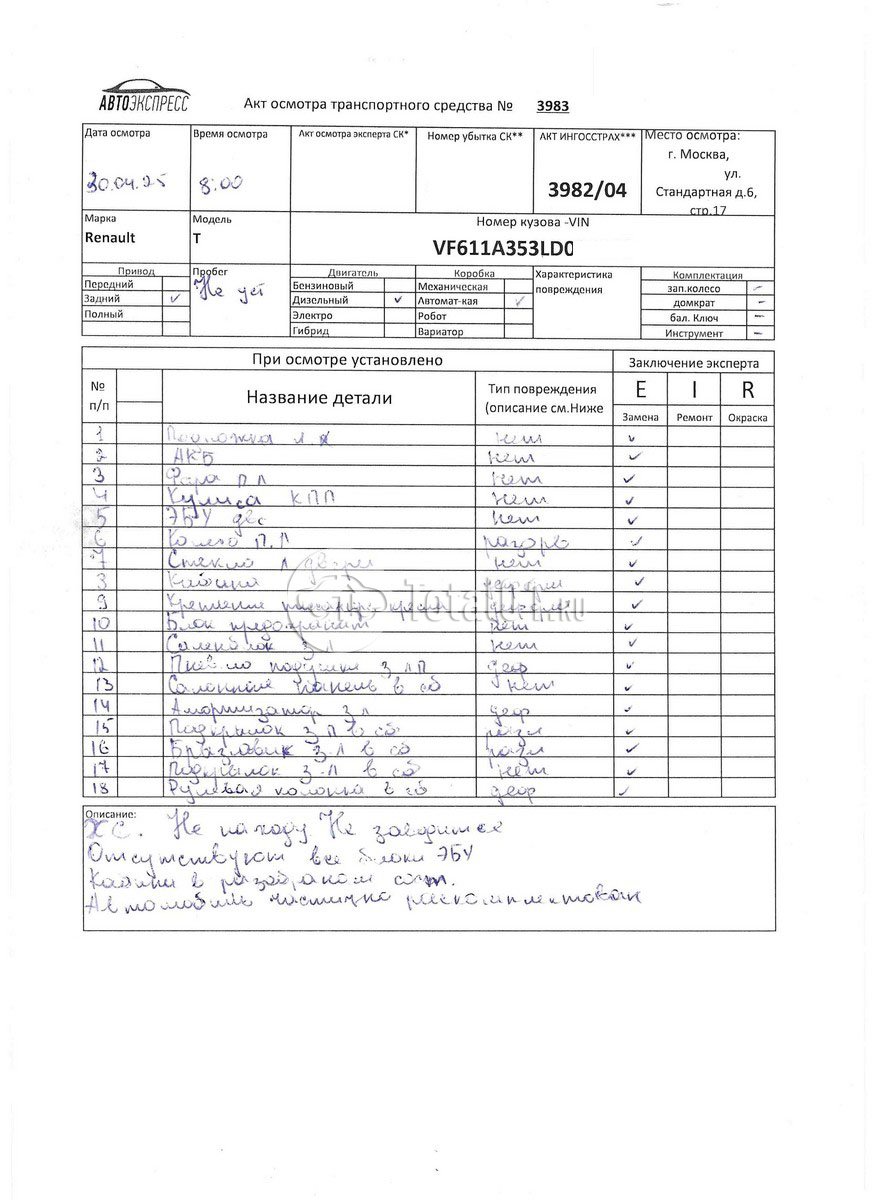 АВТОЭКСПРЕСС
Акт осмотра транспортного средства № 3983
Дата осмотра
30.04.25
Время осмотра
8:00
Акт осмотра эксперта СК*
Номер убытка СК**
АКТ ИНГОССТРАХ***
3982/04
Место осмотра:
г. Москва,
ул.
Стандартная д.6,
стр.17
Марка
Renault
Модель
T
Номер кузова -VIN
VF611A353LD0
Привод
Передний
Задний ✓
Полный
Пробег
Не уст
Двигатель
Бензиновый
Дизельный ✓
Электро
Гибрид
Коробка
Механическая
Автомат-кая ✓
Робот
Вариатор
Характеристика
повреждения
Комплектация
зап.колесо –
домкрат –
бал. Ключ –
Инструмент –
При осмотре установлено
Заключение эксперта
№ п/п
Название детали
Тип повреждения
(описание см.Ниже
E I R
Замена Ремонт Окраска
1 Подножка л нет ✓
2 АКБ нет ✓
3 Фара п л нет ✓
4 Кулиса КПП нет ✓
5 ЭБУ двс нет ✓
6 Колесо П.Л разорв ✓
7 Стекло л двери нет ✓
8 Кабина деформ ✓
9 Крепление пассажир кресла деформ ✓
10 Блок предохранит нет ✓
11 Сапенблок з л нет ✓
12 Пневмо подушка з л п деф ✓
13 Салонная панель в сб нет ✓
14 Амортизатор з л деф ✓
15 Подкрылок з п в сб разл ✓
16 Брызговик з-л в сб разл ✓
17 Подкрылок з-л в сб нет ✓
18 Рулевая колонка в сб деф ✓
Описание:
ХС. Не на ходу Не заводится
Отсутствуют все блоки ЭБУ
Кабина в разобраном сост.
Автомобиль частично раскомплектован
TotalDTP.RU